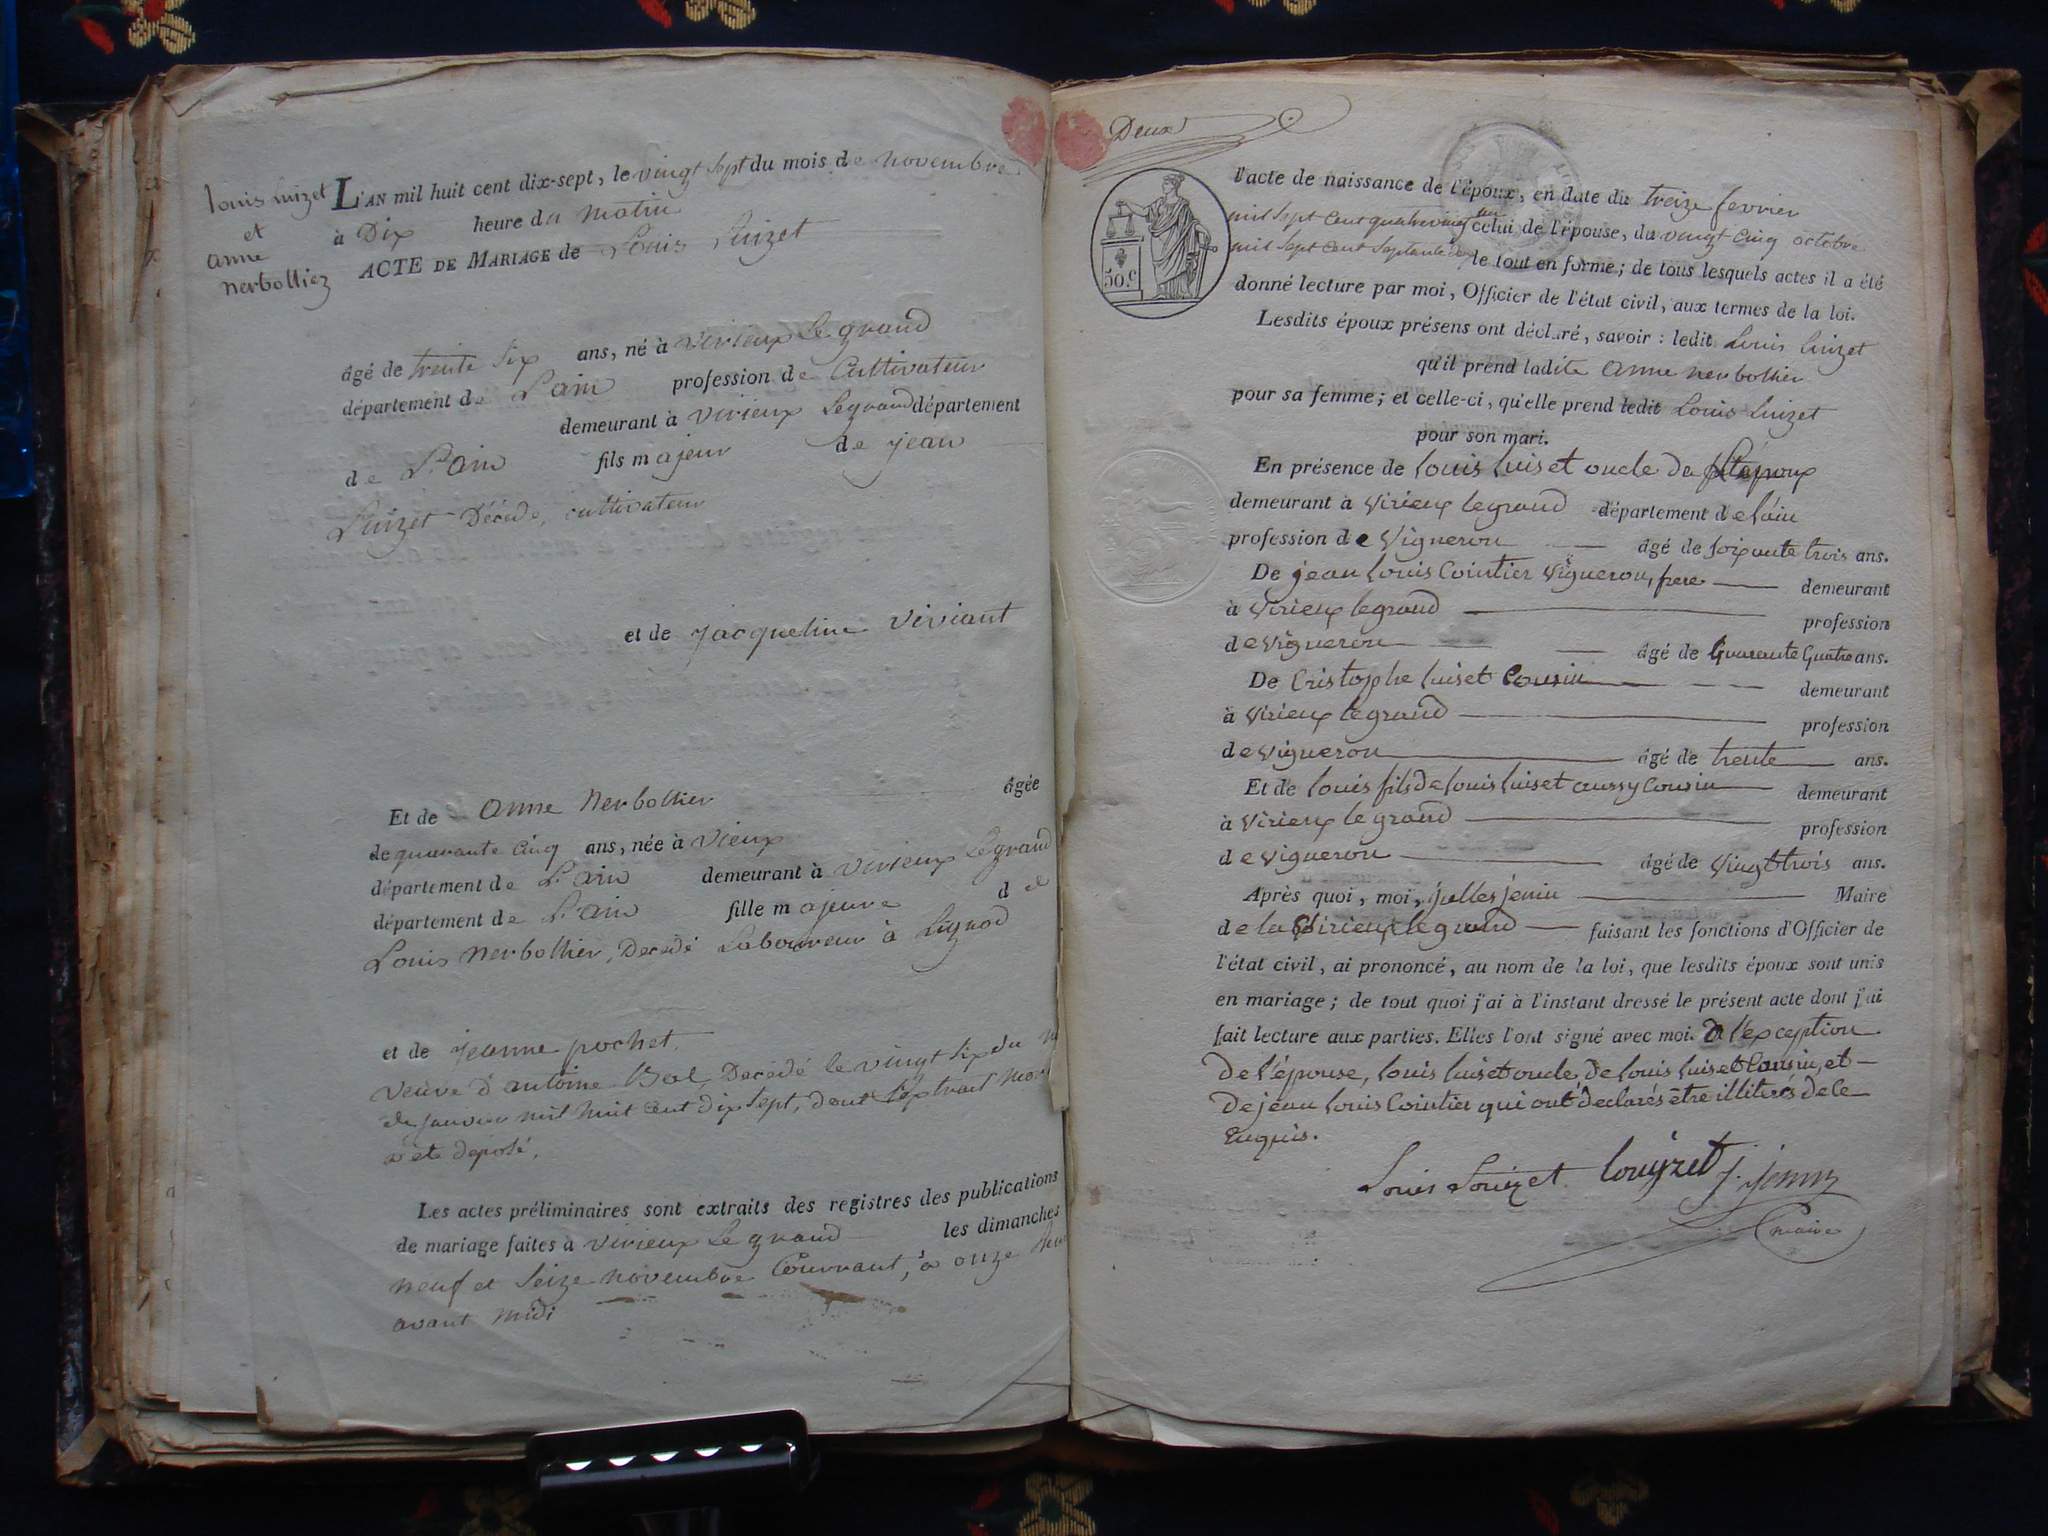 Louis Luizet
et
anne
nerbollier
L'AN mil huit cent dix-sept, le vingt sept du mois de novembre
à Dix heure du matin
ACTE DE MARIAGE de Louis Luizet
âgé de trente six ans, né à virieux Le grand
département de L'ain profession de Cultivateur
demeurant à virieux Legrand département
de L'ain fils majeur de jean
Luizet Décédé, cultivateur
et de jacqueline viviant
Et de anne nerbollier âgée
de quarante cinq ans, née à vieux
département de L'ain demeurant à virieux Legrand
département de L'ain fille majeure de
Louis nerbollier, Décédé Laboureur à Lignod
et de jeanne pochet.
veuve d'antoine Bal, Décédé le vingt six du
de janvier mil huit cent dix sept, dont
a été déposé.
Les actes préliminaires sont extraits des registres des publications
de mariage faites à virieux Le grand les dimanches
neuf et seize novembre Courrant, à onze
avant midi
Deux
50.c
l'acte de naissance de l'époux, en date du treize fevrier
mil sept cent quatrevingt un celui de l'épouse, du vingt cinq octobre
mil sept cent septante deux le tout en forme; de tous lesquels actes il a été
donné lecture par moi, Officier de l'état civil, aux termes de la loi.
Lesdits époux présens ont déclaré, savoir : ledit Louis Luizet
qu'il prend ladite anne nerbollier
pour sa femme; et celle-ci, qu'elle prend ledit Louis Luizet
pour son mari.
En présence de louis luiset oncle de
demeurant à virieux legrand département de l'ain
profession de vigneron âgé de soixante trois ans.
De jean louis Cointier vigneron, frere demeurant
à virieux legrand profession
de vigneron âgé de quarante quatre ans.
De Cristophe luiset Cousin demeurant
à virieux legrand profession
de vigneron âgé de trente ans.
Et de louis fils de louis luiset aussy Cousin demeurant
à virieux legrand profession
de vigneron âgé de vingt trois ans.
Après quoi, moi, julles jenin Maire
de la virieux le grand faisant les fonctions d'Officier de
l'état civil, ai prononcé, au nom de la loi, que lesdits époux sont unis
en mariage; de tout quoi j'ai à l'instant dressé le présent acte dont j'ai
fait lecture aux parties. Elles l'ont signé avec moi. a l'exception
de l'épouse, louis luiset oncle, de louis luiset Cousin, et
de jean louis Cointier qui ont déclarés être illiterés de ce
enquis.
Louis Louizet louyzet j. jenin
maire